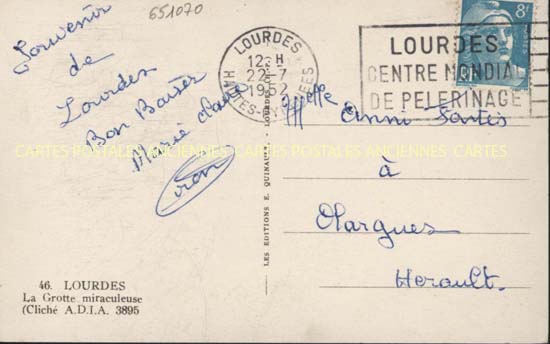 651070
Souvenir
de
Lourdes
Bon Baiser
Marie
LOURDES
12 H
22-7
1952
HAUTES-PYRENEES
8F
LOURDES
CENTRE MONDIAL
DE PELERINAGE
Melle Anni
à
Olargues
Herault.
CARTES POSTALES ANCIENNES CARTES POSTALES ANCIENNES CARTES
LES EDITIONS E.
46. LOURDES
La Grotte miraculeuse
(Cliché A.D.I.A. 3895